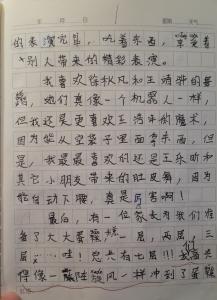 年 月 日 星期 天气
的表演完毕，吃着东西，享受着
别人带来的精彩表演。
我喜欢徐 凡和王 的舞
蹈，她们真像一个机器人一样，
但我还是更喜欢王 丰的魔术，
因为能从空袋子里面拿东西，但
是，我最最喜欢的还是王乐昕和
其它小朋友带来的肚皮舞，因为
能自动下腰，真是厉害啊！
最后，有一位家长为我们准
备了大大蛋糕，一层，两层，三
层……哇！总共有七层！！！我高兴
得像一 阵旋风一样冲到了蛋糕